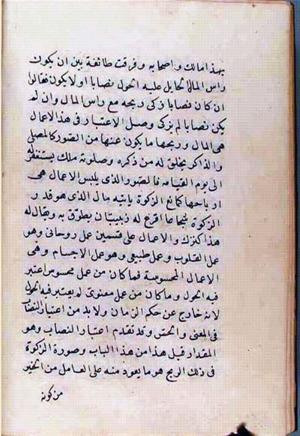 بهذا مالك واصحابه وفرقت طائفة بين ان يكون
راس المال الحايل عليه الحول نصابا او لا يكون فقالوا
ان كان نصابا زكى ربحه مع راس المال وان لم
يكن نصابا لم يزك وصل الاعتبار في هذا الاعمال
هي المال وربحها ما يكون عنها من الصور كالمصلى
والذاكر يخلق له من ذكره وصلوته ملك يستغفر له
الى يوم القيامة فالصور الذى يلبس الاعمال هى
ارباحها كمانع الزكوة ياتيه مال الذى هو قدر
الزكوة شجاعا اقرع له زبيبتان يطوق به ويقال له
هذا كنزك والاعمال على قسمين عمل روحانى وهو
عمل القلوب وعمل طبيعى وهو عمل الاجسام وهى
الاعمال المحسوسة فما كان من عمل محسوس اعتبر
فيه الحول وما كان من عمل معنوى لم يعتبر فيه الحول
لانه خارج عن حكم الزمان ولا بد من اعتبار النصاب
في المعنى والحس وقد تقدم اعتبار النصاب وهو
المقدار قبل هذا من هذا الباب وصورة الزكوة
فى ذلك الربح هو ما يعود منه على العامل من الخير
من كونه